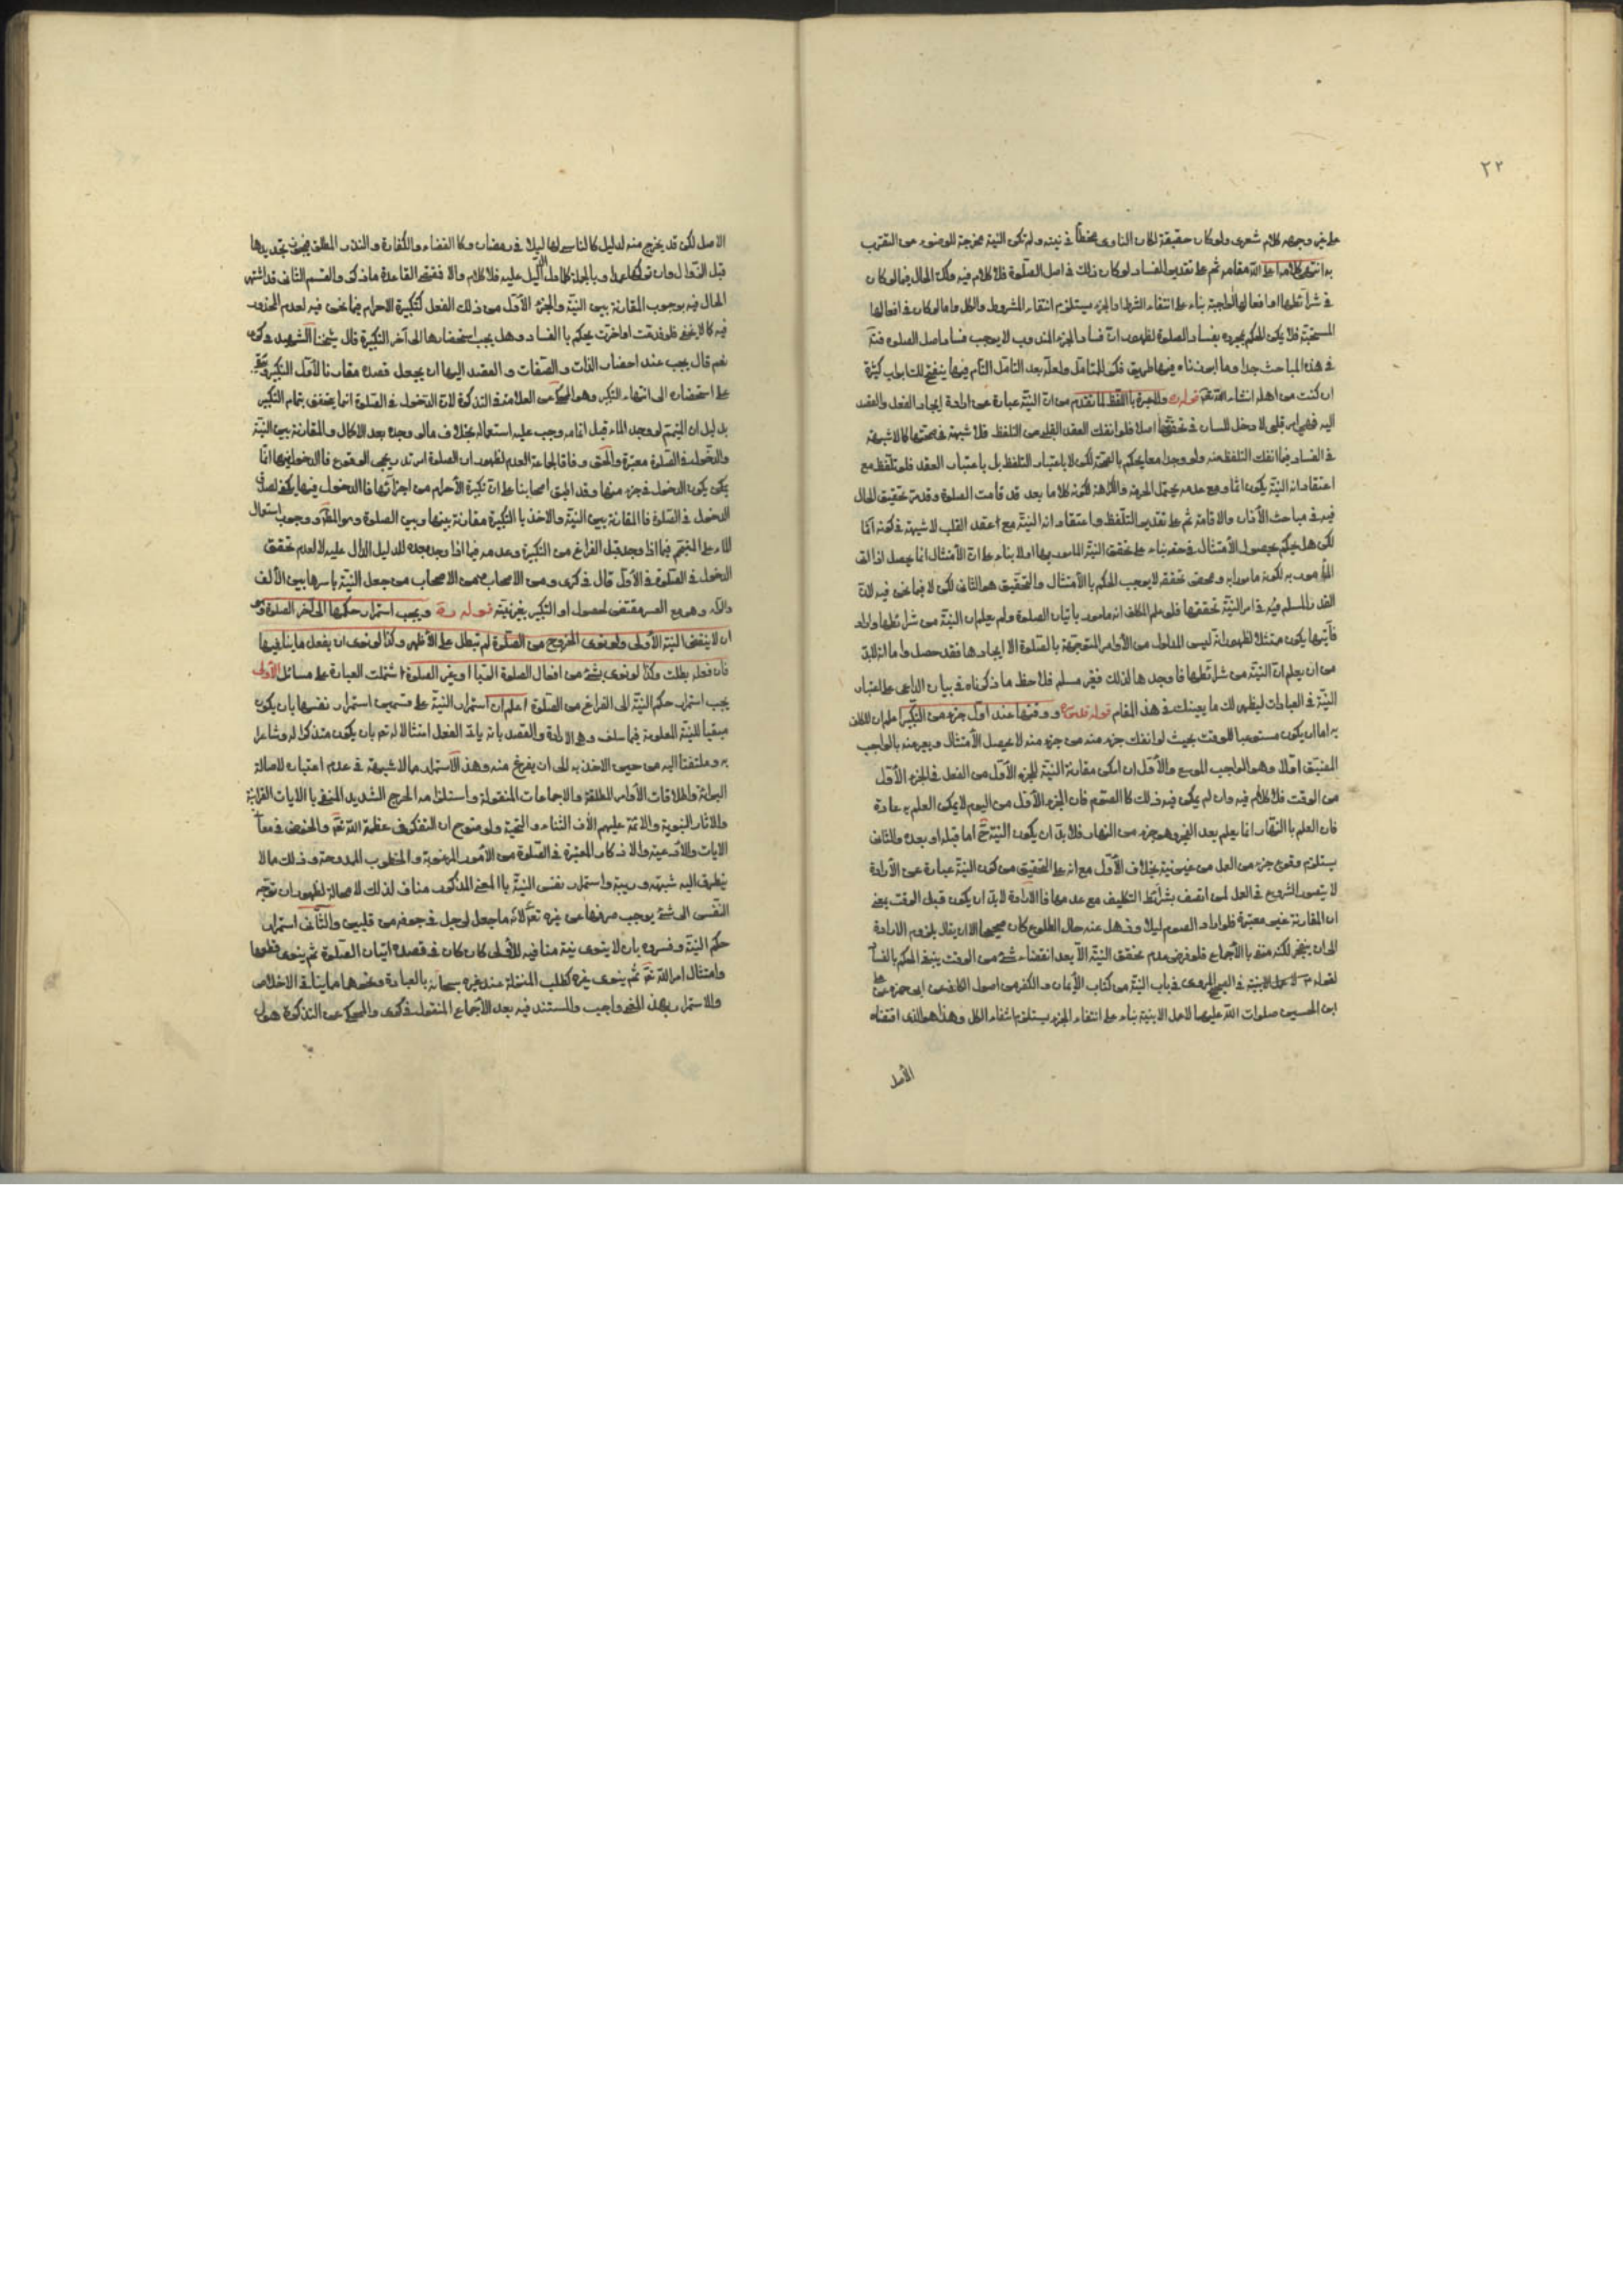 ٢٢
على غير وجهه كلام شعرى ولو كان حقيقة لكان الناوى مخطأ فى نيته ولم تكن النية مخرجة للوضوء عن التقرب
به انتهى كلامه اعلى الله مقامه ثم على تقدير الفساد لو كان ذلك فى اصل الصلوة فلا كلام فيه وكذا الحال فيما لو كان
فى شرائطها او افعالها الواجبة بناء على انتفاء الشرط او الجزء يستلزم انتفاء المشروط والكل واما لو كان فى افعالها
المستحبة فلا يمكن الحكم بمجرده بفساد الصلوة لظهور ان فساد الجزء المندوب لا يوجب فساد اصل الصلوة
فى هذه المباحث جدا وما ابرزناه فيها طريق فكن المتامل ولعله بعد التامل التام فيها ينفتح لك ابواب كثيرة
ان كنت من اهله انشاء الله تعالى قوله ولا عبرة باللفظ لما تقدم من ان النية عبارة عن ارادة ايجاد الفعل والقصد
اليه فهى امر قلبى لا دخل للسان فى تحققها اصلا فلو انفك العقد القلبى من التلفظ فلا شبهة فى صحتها كما لا شبهة
فى الفساد فيما انفك التلفظ منه ولو وجدا معا يحكم بالصحة لكن لا باعتبار التلفظ بل باعتبار العقد فلو تلفظ مع
اعتقاد انه النية يكون اثما ومع عدمه يحتمل الحرمة والكراهة لكونه كلاما بعد قد قامت الصلوة وقد مر تحقيق الحال
فيه فى مباحث الأذان والاقامة ثم على تقدير التلفظ واعتقاد انه النية مع اعتقد القلب لا شبهة فى كونه آثما
لكن هل يحكم بحصول الأمتثال فى حقه بناء على تحقق النية المامور بها اولا بناء على ان الأمتثال انما يحصل اذا اتى
المأمور به لكونه مامورا به ومحض تحققه لا يوجب الحكم بالأمتثال والتحقيق هو الثانى لكن لا فيما نحن فيه لان
القدر المسلم فيه فى امر النية تحققها فلو علم المكلف انه مامور بأتيان الصلوة ولم يعلم ان النية من شرائطها واراد
فأتيها يكون ممتثلا لظهور انه ليس المدلول من الأوامر المتوجهة بالصلوة الا ايجادها فقد حصل واما انه لابد
من ان يعلم ان النية من شرائطها فاوجدها لذلك فغير مسلم فلاحظ ما ذكرناه فى بيان الداعى على اعتبار
النية فى العبادات ليظهر لك ما يعينك فى هذا المقام قوله ووقتها عند اول جزء من التكبير اعلم ان المكلف
به اما ان يكون مستوعبا للوقت بحيث لو انفك جزء منه من جزء منه لا يحصل الأمتثال ويعبر عنه بالواجب
المضيق اولا وهو الواجب الموسع والأول ان امكن مقارنة النية للجزء الأول من الفعل فى الجزء الأول
من الوقت فلا كلام فيه وان لم يكن فيه ذلك كالصوم فان الجزء الأول من اليوم لا يمكن العلم به عادة
فان العلم بالنهار انما يعلم بعد الفجر وهو جزء من النهار فلا بد ان يكون النية ح اما قبله او بعده والثانى
يستلزم وقوع جزء من العمل من غير نية بخلاف الأول مع انه على التحقيق من كون النية عبارة عن الأرادة
لا يتصور الشروع فى العمل لمن اتصف بشرائط التكليف مع عدمها فالارادة لابد ان يكون قبل الوقت يعنى
ان المقارنة غير معتبرة فلو اراد الصوم ليلا وذهل عنه حال الطلوع كان صحيحا الا ان يقال بلزوم الارادة
الى ان ينجز لكنه منفى بالأجماع فلو فرض عدم تحقق النية الا بعد انقضاء شئ من الوقت ينبغى الحكم بالفساد
لقوله لا عمل الا بنية فى المروى فى باب النية من كتاب الأيمان والكفر من اصول الكافى عن ابى حمزة عن على
ابن الحسين صلوات الله عليهما لا عمل الا بنية بناء على انتفاء الجزء يستلزم انتفاء الكل وهذا هو الذى اقتضاه
الأصل
الاصل لكن قد يخرج منه لدليل كالناسى لها ليلا فى رمضان وكالقضاء والكفارة والنذر المطلق فيجوز تجديدها
قبل الزوال وان تركها عمدا وبالجملة كلما دل الدليل عليه فلا كلام والا فمقتضى القاعدة ما ذكر والقسم الثانى قد اشتهر
الحال فيه بوجوب المقارنة بين النية والجزء الأول من ذلك الفعل كتكبيرة الاحرام فيما نحن فيه لعدم المحذور
فيه كما لا يخفى فلو قدمت او اخرت يحكم بالفساد وهل يجب استحضارها الى آخر التكبيرة قال شيخنا الشهيد فى كرى
نعم قال يجب عند احضار الذات والصفات والقصد اليها ان يجعل قصده مقارنا لأول التكبير ويبقى
على استحضاره الى انتهاء التكبير وهو المحكى عن العلامة فى التذكرة لان الدخول فى الصلوة انما يتحقق بتمام التكبير
بدليل ان المتيمم لو وجد الماء قبل اتمامه وجب عليه استعماله بخلاف ما لو وجده بعد الاكمال والمقارنة بين النية
والدخول فى الصلوة معتبرة والحق وفاقا لجماعة العدم لظهور ان الصلوة امر تدريجى الوقوع فالدخول فيها انما
يمكن يكون الدخول فى جزء منها وقد اطبق اصحابنا على ان تكبيرة الأحرام من اجزائها فالدخول فيها يكفى لصدق
الدخول فى الصلوة فالمقارنة بين النية والاخذ بالتكبيرة مقارنة بينها وبين الصلوة وهو المط ووجوب استعمال
الماء على المتيمم فيما اذا وجد قبل الفراغ من التكبيرة وعدمه فيما اذا وجد بعده للدليل الدال عليه لا لعدم تحقق
الدخول فى الصلوة فى الأول قال فى كرى ومن الاصحاب من جعل النية باسرها بين الألف
والراء وهو مع العسر مقتض لحصول اول التكبير بغير نية قوله ره ويجب استمرار حكمها الى آخر الصلوة وهو
ان لا ينقض النية الأولى ولو نوى الخروج من الصلوة لم تبطل على الأظهر وكذا لو نوى ان يفعل ما ينافيها
فان فعله بطلت وكذا لو نوى بشئ من افعال الصلوة الريا او بغير الصلوة اشتملت العبارة على مسائل الأولى
يجب استمرار حكم النية الى الفراغ من الصلوة اعلم ان استمرار النية على قسمين استمرار نفسها بان يكون
مبقيا للنية المعلومة فيما سلف وهى الارادة والقصد بانه يأتى الفعل امتثالا له تعالى بان يكون متذكرا له وشاعرا
به وملتفتا اليه من حين الاخذ به الى ان يفرغ منه وهذا الأستمرار مما لا شبهة فى عدم اعتباره لاصالة
البرائة واطلاقات الأوامر المطلقة والاجماعات المنقولة واستلزامه الحرج الشديد المنفى بالايات القرانية
والاثار النبوية والائمة عليهم الأف الثناء والتحية ولوضوح ان التفكر فى عظمة الله تعالى والخوض فى معانى
الايات والادعية والاذكار المعتبرة فى الصلوة من الأمور المرغوبة والمطلوب الممدوحة وذلك مما لا
يتطرق اليه شبهة وريبة واستمرار نفس النية بالمعنى المذكور مناف لذلك لا محالة لظهور ان توجه
النفس الى شئ يوجب صرفها عن غيره لانه ما جعل لرجل فى جوفه من قلبين والثانى استمرار
حكم النية وفسروه بان لا ينوى نية منافية للأولى كان كان فى قصده اتيان الصلوة ثم ينوى قطعها
وامتثال امر الله تعالى ثم ينوى غيره كطلب المنزلة عند غيره سبحانه بالعبادة ونحوها مما ينافى الاخلاص
والاستمرار بهذا المعنى واجب والمستند فيه بعد الأجماع المنقول فى كرى والمحكى عن التذكرة هو ان